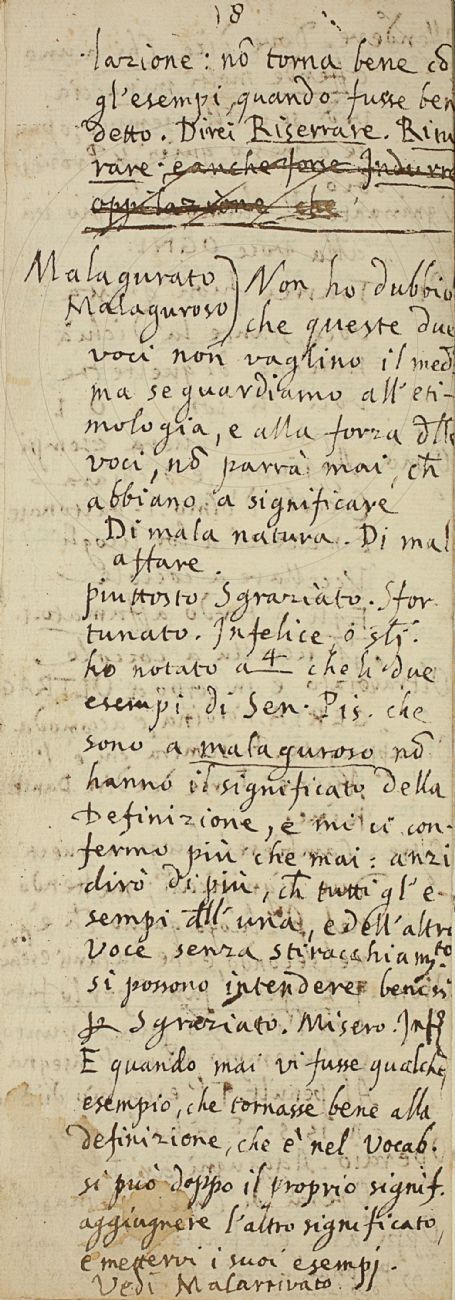 18
lazione: nõ torna bene cõ
gl'esempi, quando fusse ben
detto. Direi Riserrare. Ritu
rare. e anche forse Indurre
oppilazione che
Malagurato
Malaguroso) Non ho dubbio
che queste due
voci non vaglino il med.
ma se guardiamo all'eti-
mologia, e alla forza dlle
voci, nõ parrà mai, ch
abbiano a significare
Di mala natura. Di mal
affare.
piuttosto Sgraziato. Sfor
tunato. Infelice, ò
ho notato a 4 che li due
esempi di Sen. Pis. che
sono a malaguroso nõ
hanno il significato della
Definizione, e mi ci con-
fermo più che mai: anzi
dirò di più, ch tutti gl'e-
sempi dll'una, e dell'altra
voce senza stiracchiam.to
si possono intendere beniss.
Sgraziato. Misero.
E quando mai vi fusse qualche
esempio, che tornasse bene alla
definizione, che è nel Vocab.
si può doppo il proprio signif.
aggiugnere l'altro significato,
e mettervi i suoi esempj.
Vedi Malarrivato